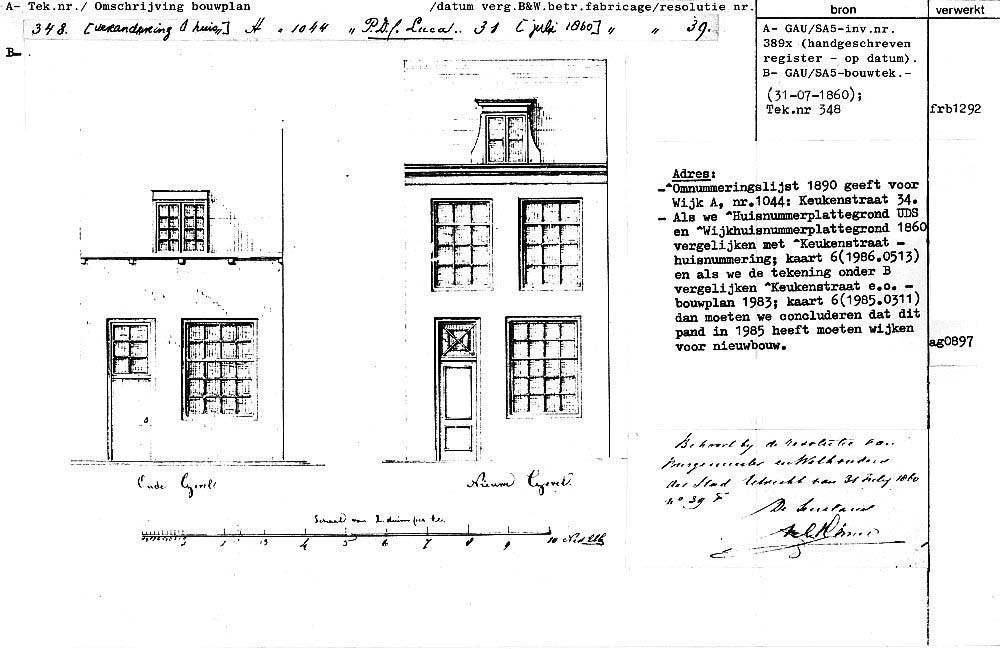 A- Tek.nr./ Omschrijving bouwplan /datum verg.B&W.betr.fabricage/resolutie nr.
bron
verwerkt
348. [verandering 1 huis] A „ 1044 „ P.D.f. Luca.. 31 [juli 1860] „ „ 39.
B-
A- GAU/SA5-inv.nr.
389x (handgeschreven
register - op datum).
B- GAU/SA5-bouwtek.-
(31-07-1860);
Tek.nr 348
frb1292
Adres:
-^Omnummeringslijst 1890 geeft voor
Wijk A, nr.1044: Keukenstraat 34.
- Als we ^Huisnummerplattegrond UDS
en ^Wijkhuisnummerplattegrond 1860
vergelijken met ^Keukenstraat -
huisnummering; kaart 6(1986.0513)
en als we de tekening onder B
vergelijken ^Keukenstraat e.o. -
bouwplan 1983; kaart 6(1985.0311)
dan moeten we concluderen dat dit
pand in 1985 heeft moeten wijken
voor nieuwbouw.
ag0897
Oude Gevel
Nieuwe Gevel
Behoort bij de resolutie van
Burgemeester en Wethouders
der Stad Utrecht van 31 July 1860
no 39 F
De
Schaal van 2 duim per el.
4 5 6 7 8 9 10 Ned Ell